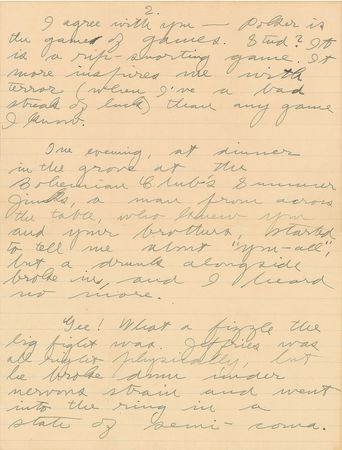 2.
I agree with you — Poker is
the game of games. Stud? It
is a rip-snorting game. It
more inspires me with
terror (when I've a bad
streak of luck) than any game
I know.
One evening, at dinner
in the grove at the
Bohemian Club's Summer
Jinks, a man from across
the table, who knew you
and your brothers, started
to tell me about "you-all",
but a drunk alongside
broke in, and I heard
no more.
Gee! What a fizzle the
big fight was. Jeffries was
all right physically, but
he broke down under
nervous strain and went
into the ring in a
state of semi-coma.